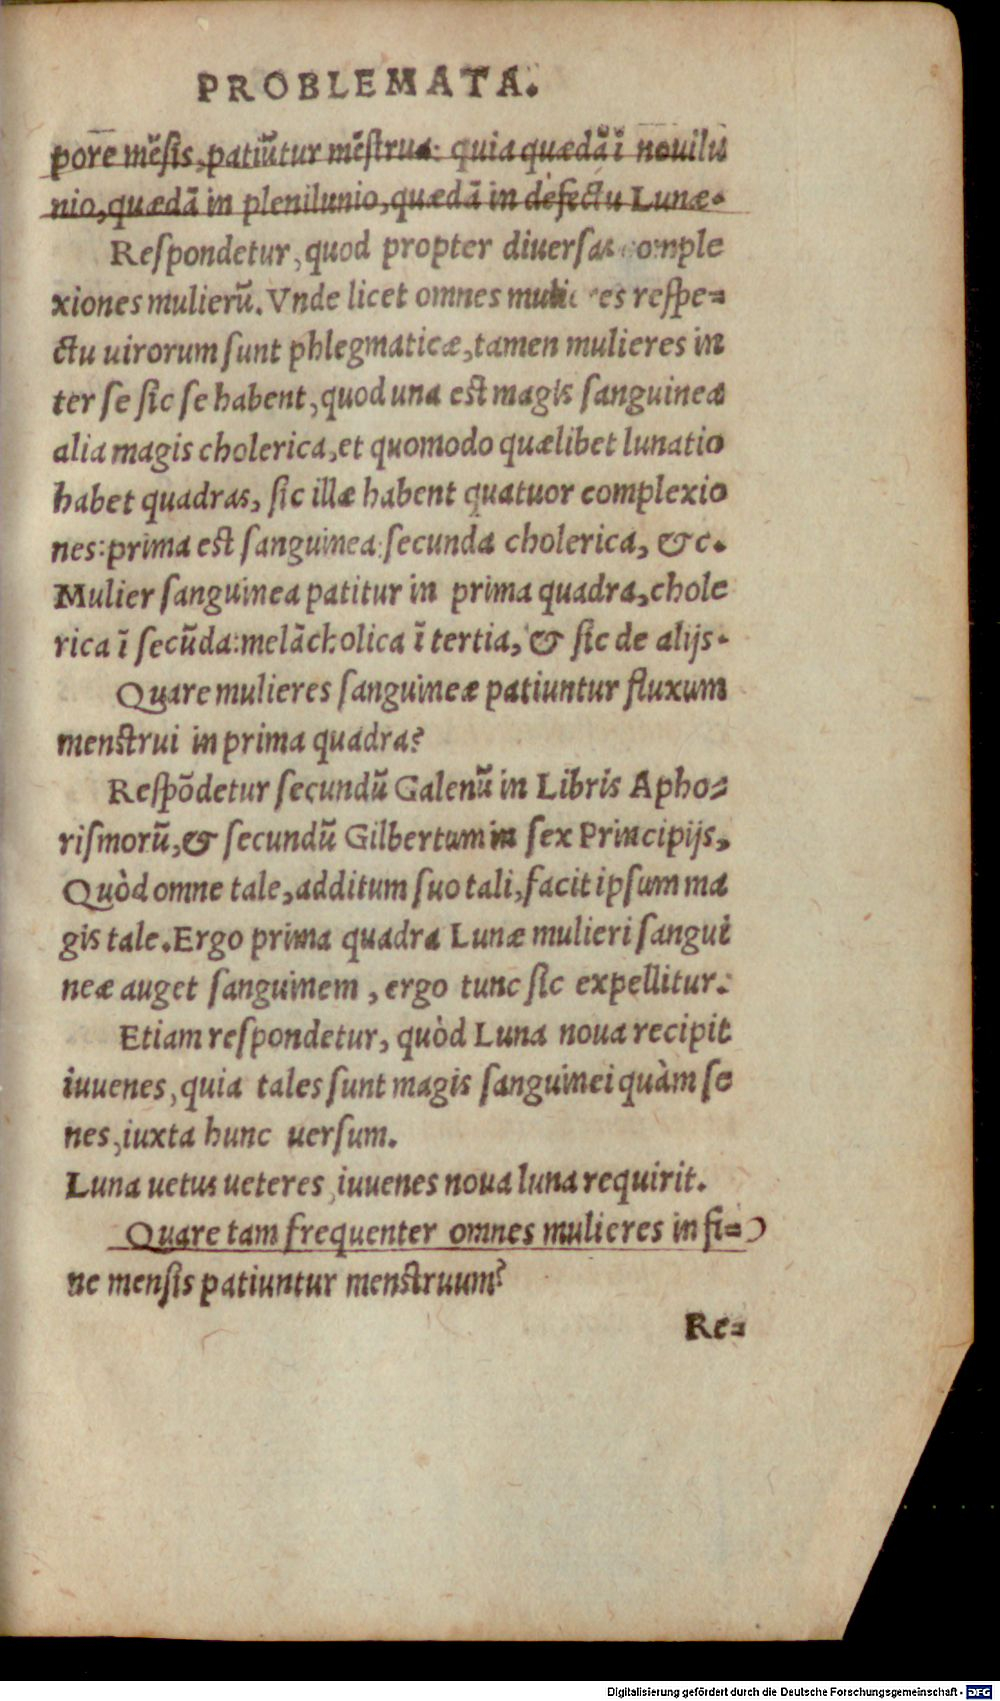 PROBLEMATA.
pore mẽsis, patiũtur mẽstrua: quia quædã ĩ nouilu
nio, quædã in plenilunio, quædã in defectu Lunæ.
Respondetur, quod propter diuersas comple
xiones mulierũ. Vnde licet omnes mulieres respe=
ctu uirorum sunt phlegmaticæ, tamen mulieres in
ter se sic se habent, quod una est magis sanguinea
alia magis cholerica, et quomodo quælibet lunatio
habet quadras, sic illæ habent quatuor complexio
nes: prima est sanguinea: secunda cholerica, &c.
Mulier sanguinea patitur in prima quadra, chole
rica ĩ secũda: melãcholica ĩ tertia, & sic de alijs.
Quare mulieres sanguineæ patiuntur fluxum
menstrui in prima quadra?
Respõdetur secundũ Galenũ in Libris Apho=
rismorũ, & secundũ Gilbertum in sex Principijs,
Quòd omne tale, additum suo tali, facit ipsum ma
gis tale. Ergo prima quadra Lunæ mulieri sangui
neæ auget sanguinem, ergo tunc sic expellitur.
Etiam respondetur, quòd Luna noua recipit
iuuenes, quia tales sunt magis sanguinei quàm se
nes, iuxta hunc uersum.
Luna uetus ueteres, iuuenes noua luna requirit.
Quare tam frequenter omnes mulieres in fi=
ne mensis patiuntur menstruum?
Re=
Digitalisierung gefördert durch die Deutsche Forschungsgemeinschaft - DFG